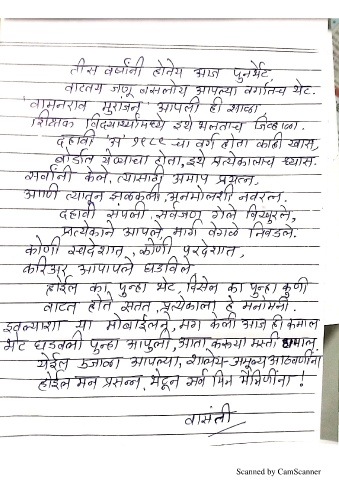 तीस वर्षांनी होतेय आज पुनर्भेट,
वाटतय जणू बसलोय आपल्या वर्गातच थेट.
वामनराव मुरांजन आपली ही शाळा
शिक्षक विद्यार्थ्यांमध्ये इथे भलताच जिव्हाळा.
दहावी 'अ' १९८९ चा वर्ग होता काही खास,
बोर्डात येण्याचा होता, इथे प्रत्येकालाच ध्यास.
सर्वांनी केले, त्यासाठी अमाप प्रयत्न,
आणि त्यातून झळकली, अनमोलशी नवरत्न.
दहावी संपली, सर्वजण गेले विखुरले,
प्रत्येकाने आपले, मार्ग वेगळे निवडले.
कोणी स्वदेशात, कोणी परदेशात,
करिअर आपापले घडविले
होईल का पुन्हा भेट, दिसेल का पुन्हा कुणी
वाटत होते सतत, प्रत्येकाला हे मनोमनी.
इवल्याशा या मोबाईलने, मग केली आज ही कमाल
भेट घडवली पुन्हा आपुली, आता करूया मस्ती धमाल
येईल उजाळा आपल्या, शालेय-अमूल्य आठवणींना
होईल मन प्रसन्न, भेटून सर्व मित्र मैत्रिणींना !
वासंती
Scanned by CamScanner